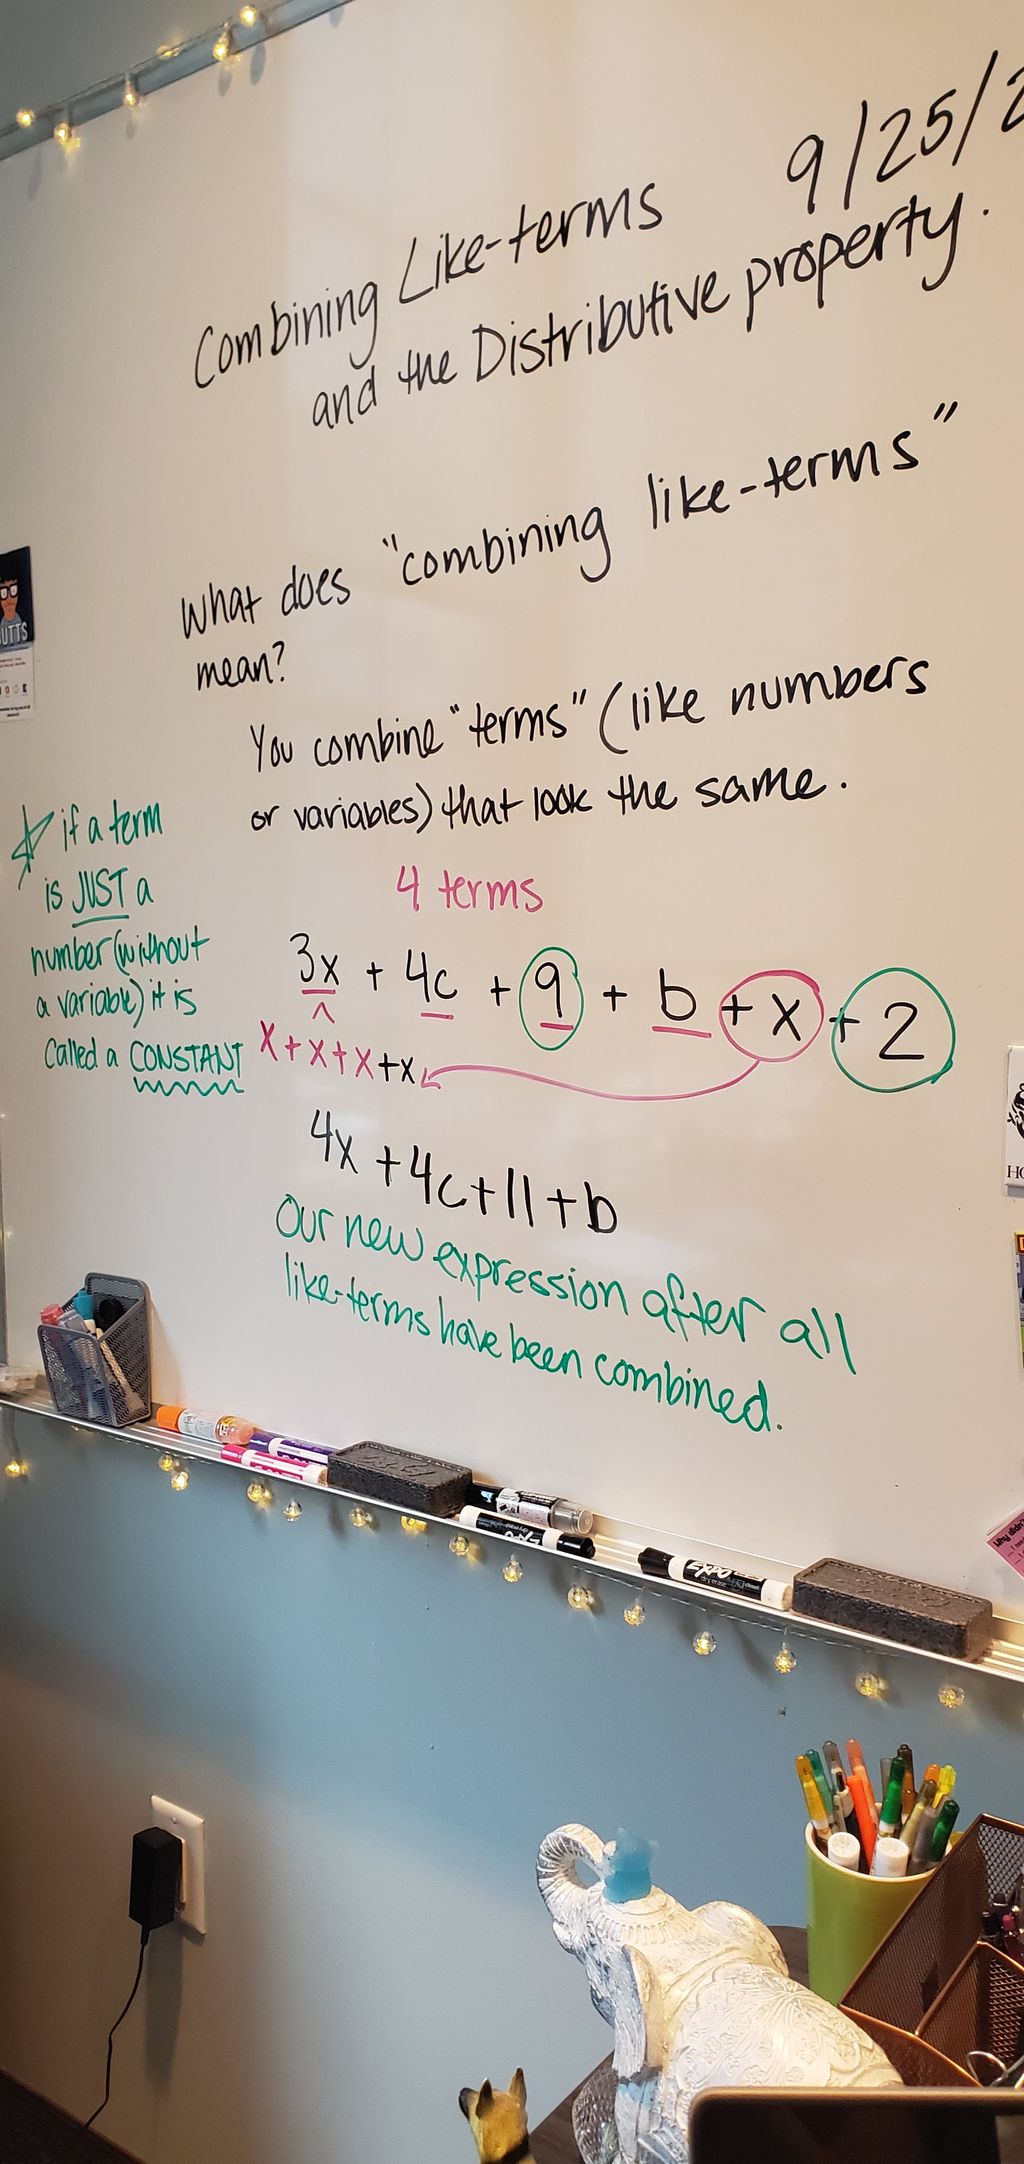 9/25/2
Combining Like-terms
and the Distributive property.
What does "combining like-terms"
mean?
You combine "terms" (like numbers
or variables) that look the same.
if a term
is JUST a
number (without
a variable) it is
called a CONSTANT
4 terms
3x + 4c + 9 + b + x + 2
x + x + x + x
4x + 4c + 11 + b
Our new expression after all
like-terms have been combined.
BUTTS
HO
Why didn't
EXPO